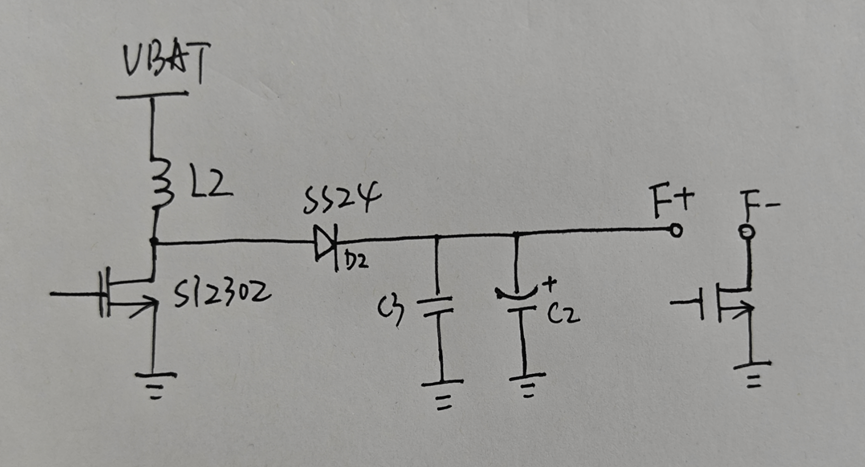 VBAT
L2
SS24
D2
SI2302
C3
+
C2
F+
F-